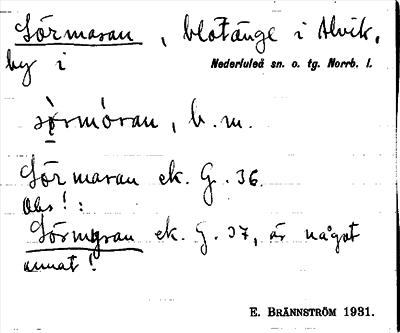 Sörmaran, blötänge i Alvik,
by i Nederluleå sn. o. tg. Norrb. l.
sø̀rmóran, b. m.
Sörmaran ek. G. 36.
Obs!:
Sörmyran ek. G. 37, är något
annat!
E. BRÄNNSTRÖM 1931.